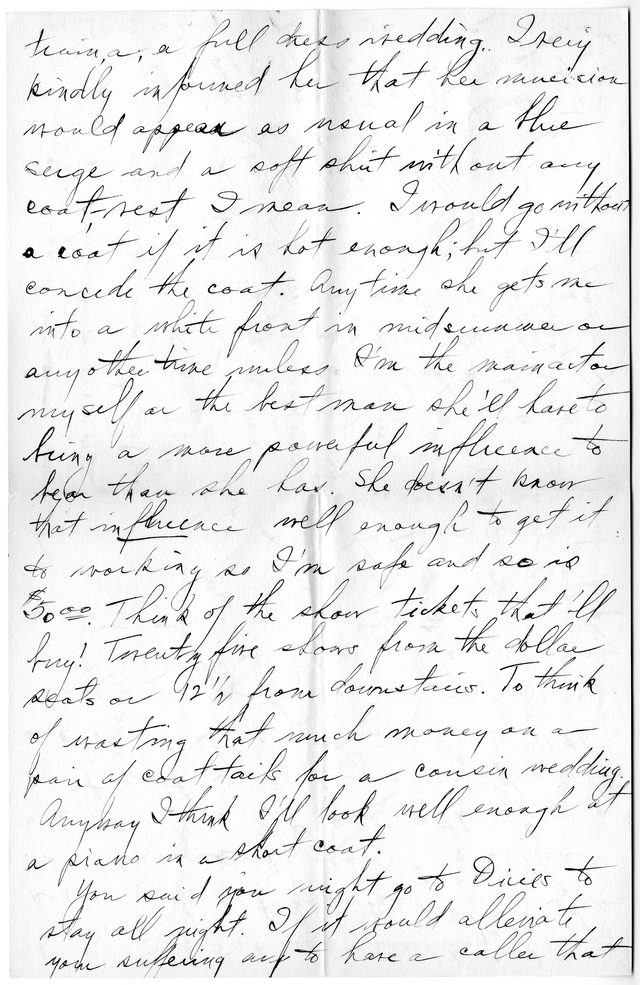 a full dress wedding. I very
kindly informed her that her musician
would appear as usual in a blue
serge and a soft shirt without any
coat-vest I mean. I would go without
a coat if it is hot enough; but I'll
concede the coat. Any time she gets me
into a white front in midsummer or
any other time unless I'm the main actor
myself or the best man she'll have to
bring a more powerful influence to
bear than she has. She doesn't know
that influence well enough to get it
to working so I'm safe and so is
$50.00. Think of the show tickets that'll
buy! Twenty five shows from the dollar
seats or 12½ from downstairs. To think
of wasting that much money on a
pair of coat tails for a cousin wedding.
Anyway I think I'll look well enough at
a piano in a short coat.
You said you might go to Dicies to
stay all night. If it would alleviate
your suffering any to have a caller that